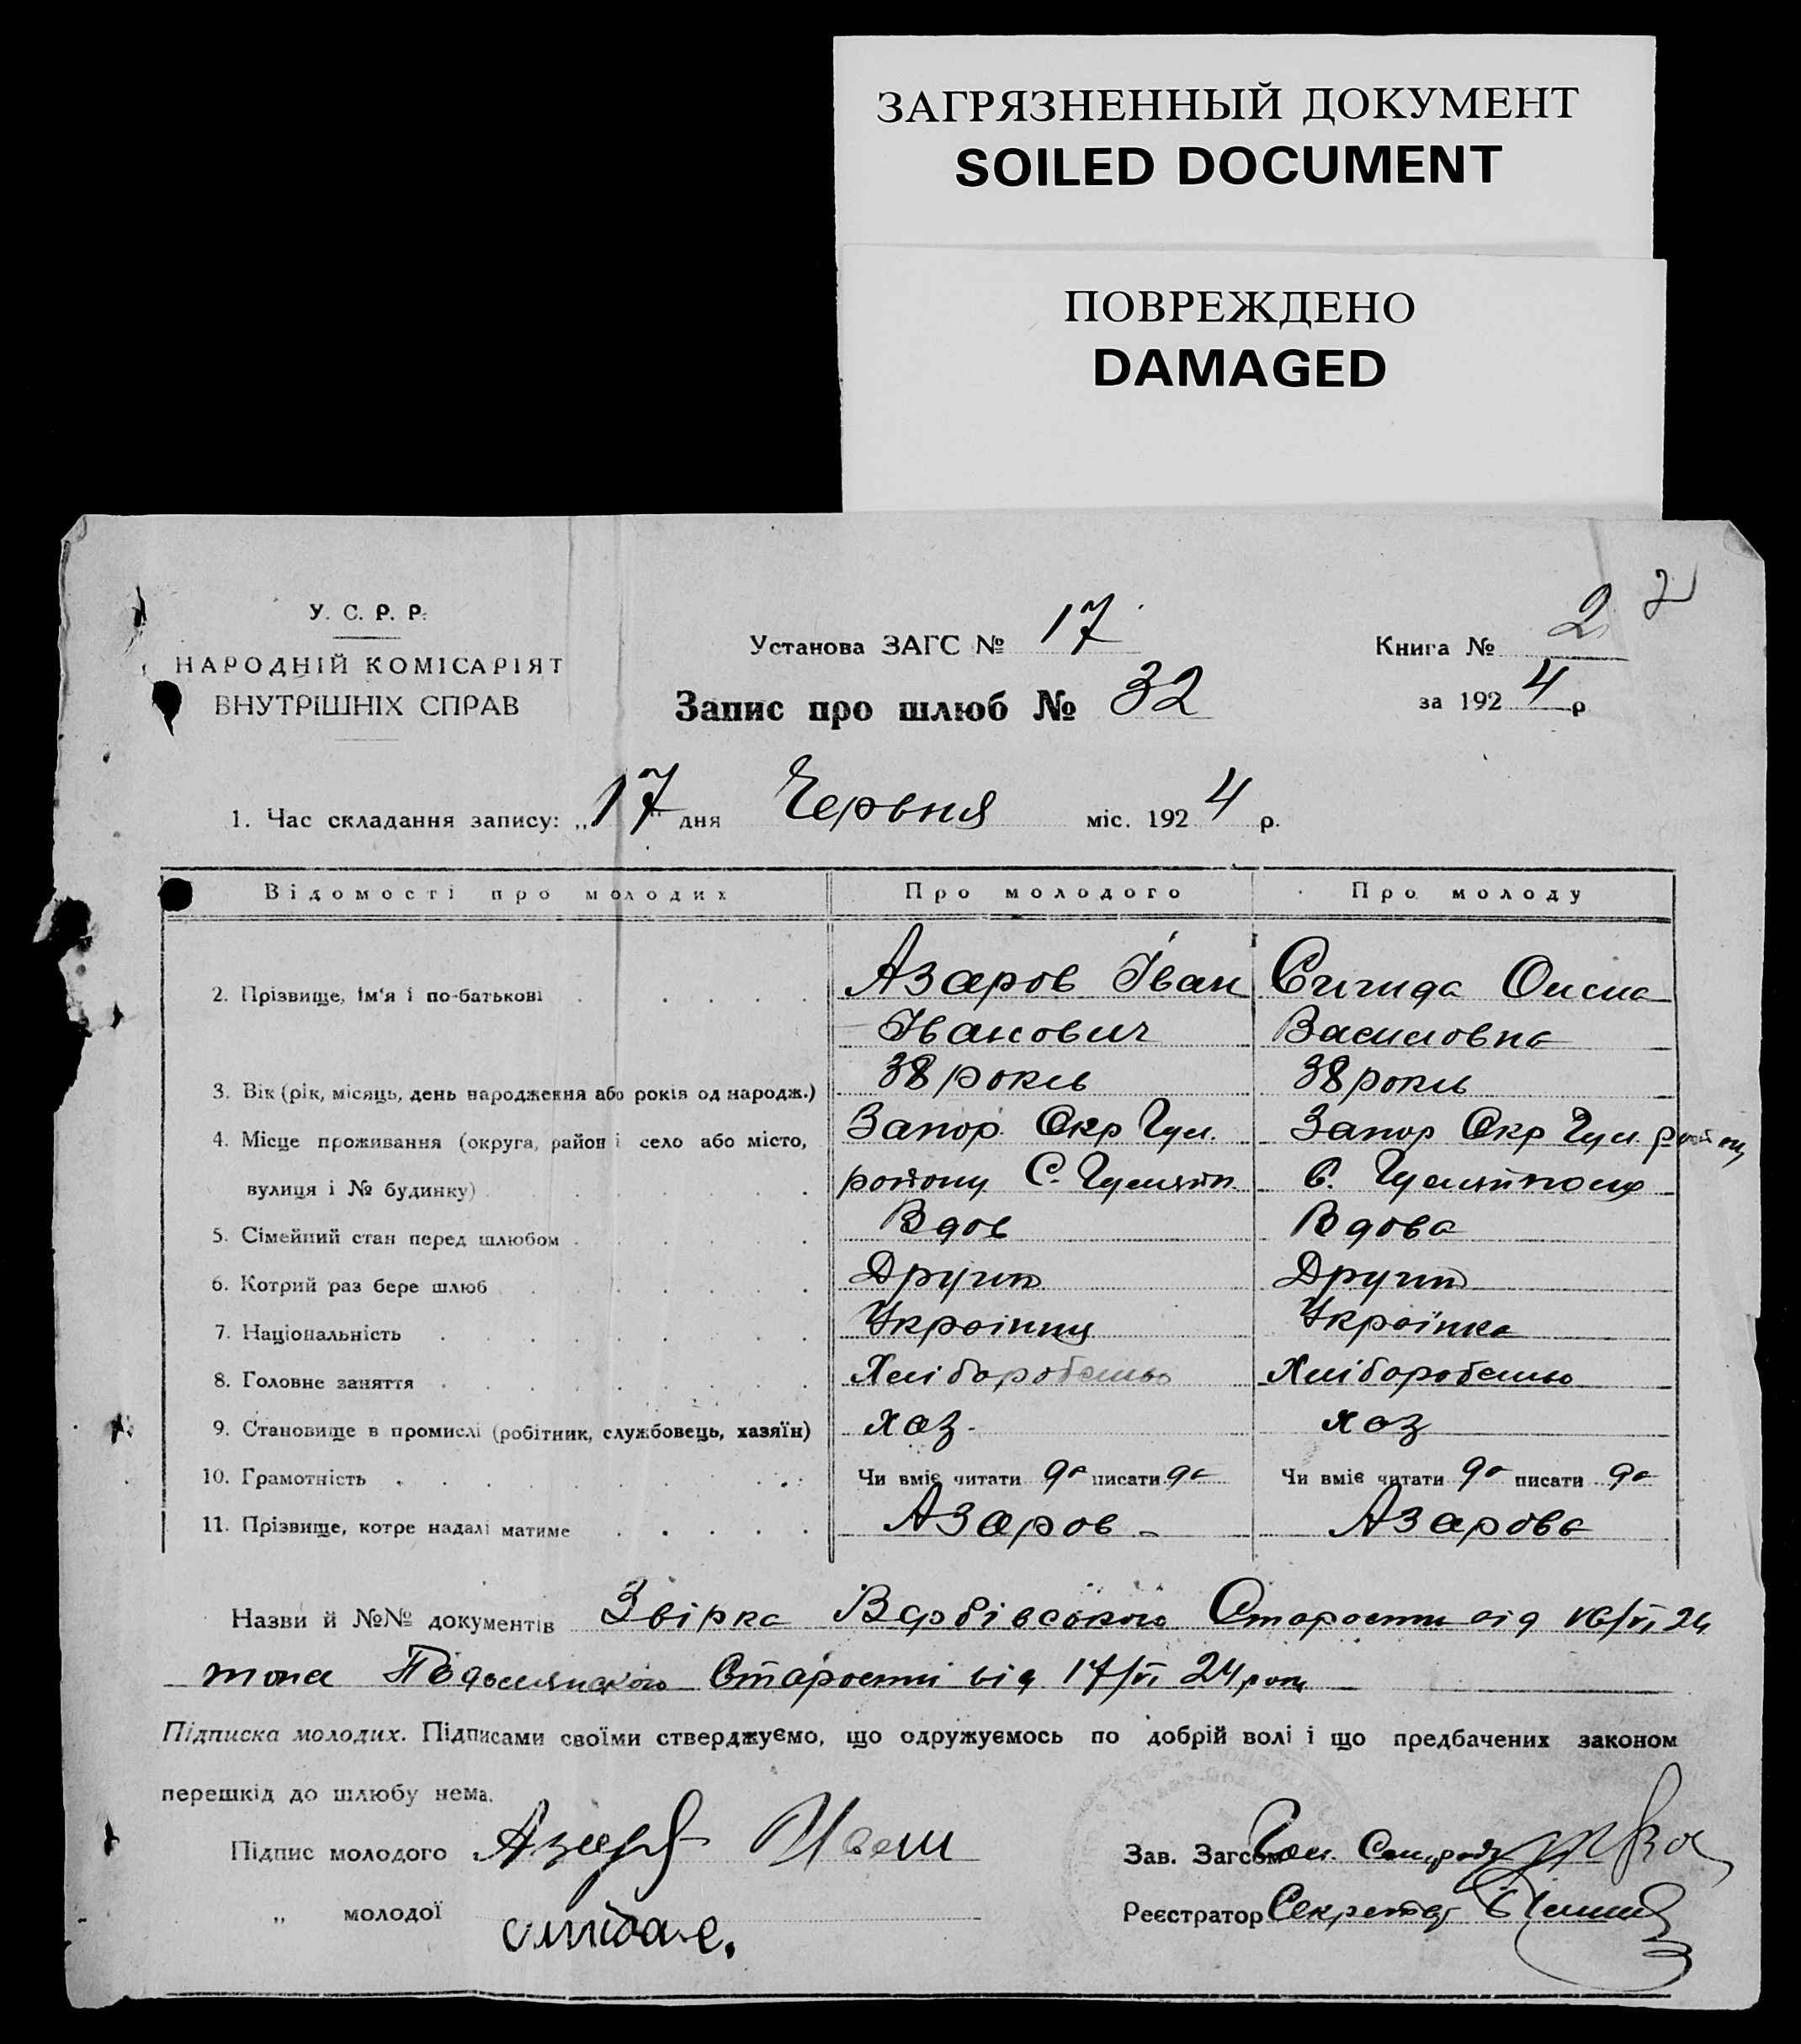 ЗАГРЯЗНЕННЫЙ ДОКУМЕНТ
SOILED DOCUMENT
ПОВРЕЖДЕНО
DAMAGED
2
У. С. Р. Р.
НАРОДНІЙ КОМІСАРІЯТ
ВНУТРІШНІХ СПРАВ
Установа ЗАГС № 17
Книга № 2
Запис про шлюб № 32
за 1924 р
1. Час складання запису: „17" дня Червня міс. 1924 р.
Відомості про молодих Про молодого Про молоду
2. Прізвище, ім'я і по-батькові Азаров Іван Сигида
Іванович Василовна
3. Вік (рік, місяць, день народження або років од народж.) 38 років 38 років
4. Місце проживання (округа, район і село або місто, Запор Окр Гул. Запор Окр Гул. району
вулиця і № будинку) району С. Гуляйп. С. Гуляйполе
5. Сімейний стан перед шлюбом Вдов Вдова
6. Котрий раз бере шлюб Другий Другий
7. Національність Українец Українка
8. Головне заняття Хліборобство Хліборобство
9. Становище в промислі (робітник, службовець, хазяїн) хаз. хаз
10. Грамотність Чи вміє читати да писати да Чи вміє читати да писати да
11. Прізвище, котре надалі матиме Азаров Азарова
Назви й №№ документів Звірка Вербівського Старости від 16/VI 24
Старости від 17/VI 24 року
Підписка молодих. Підписами своїми стверджуємо, що одружуємось по добрій волі і що предбачених законом
перешкід до шлюбу нема.
Підпис молодого Азаров Иван
Зав. Загсом Гол.
„ молодої
Реєстратор Секретар